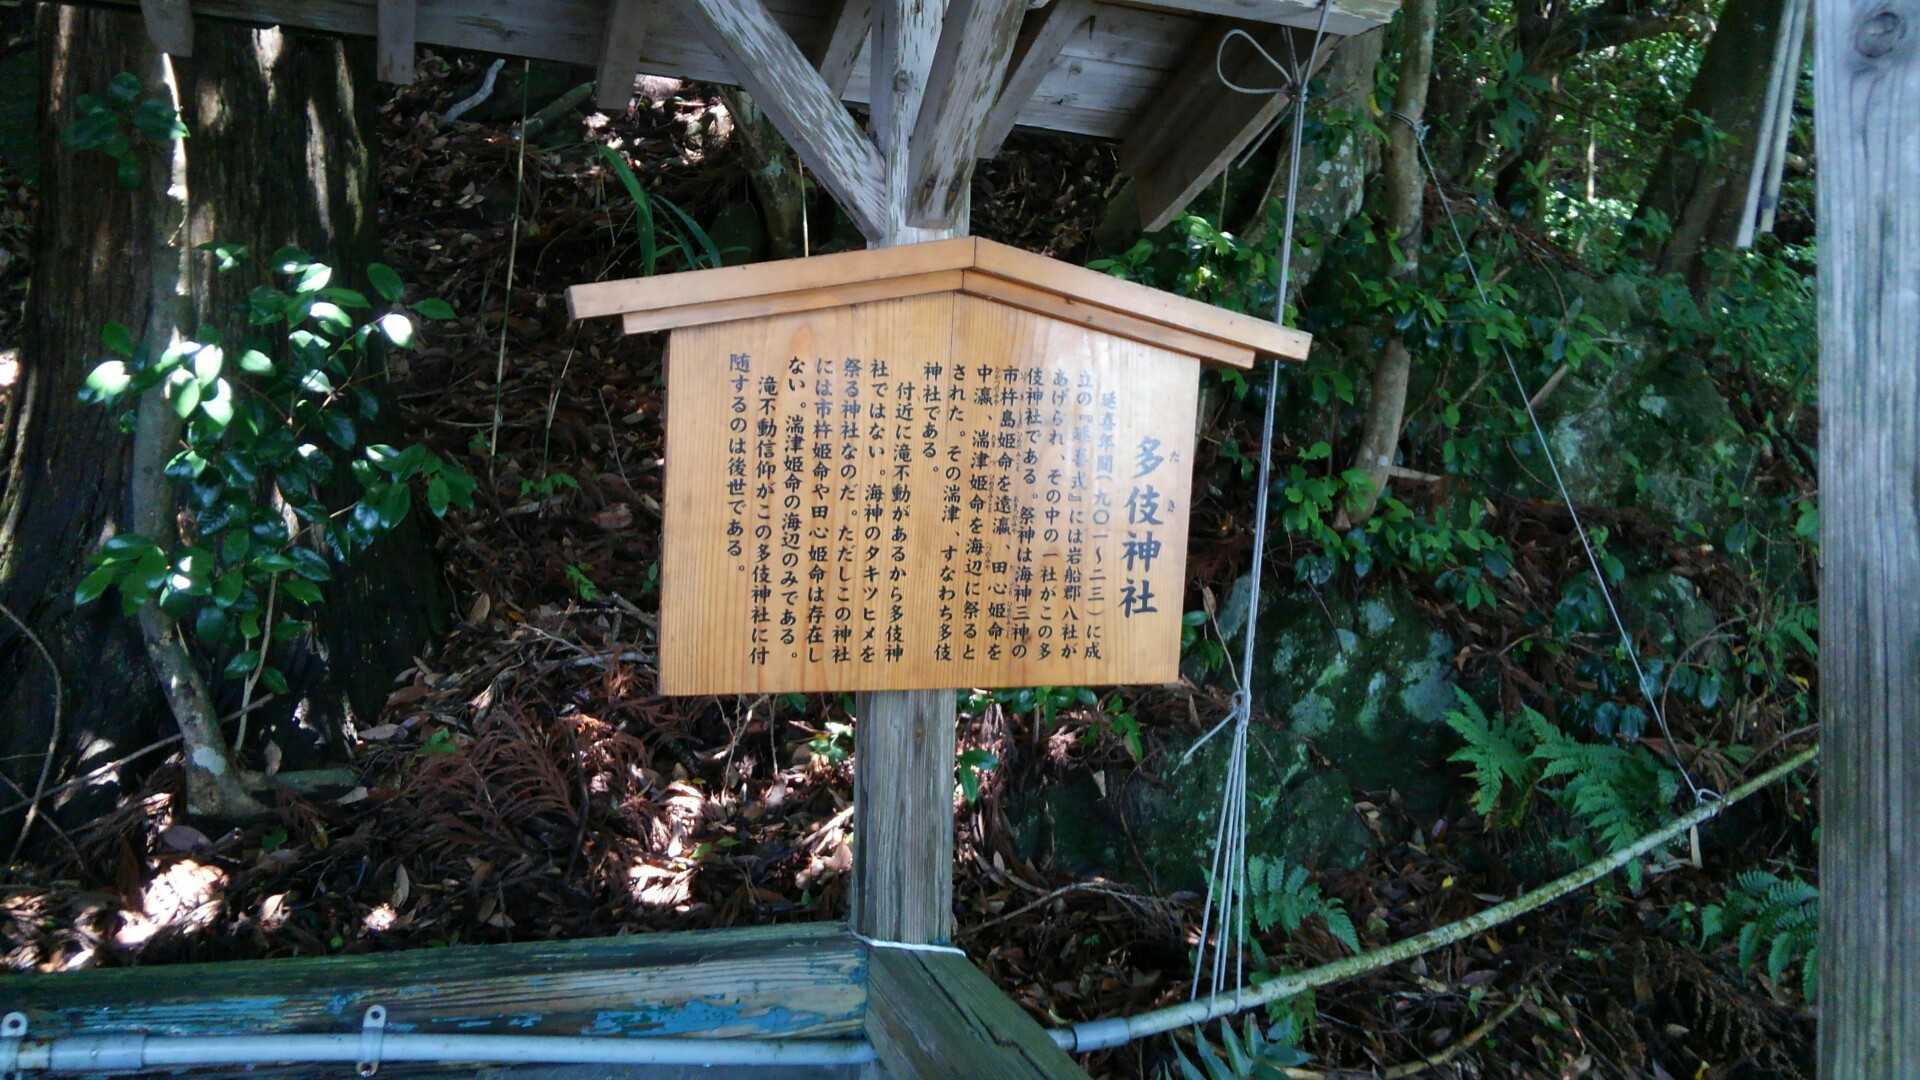 多伎神社
だき
延喜年間(九〇一~二三)に成
立の『延喜式』には岩船郡八社が
あげられ、その中の一社がこの多
伎神社である。祭神は海神三神の
市杵島姫命を遠瀛、田心姫命を
中瀛、湍津姫命を海辺に祭ると
された。その湍津、すなわち多伎
神社である。
付近に滝不動があるから多伎神
社ではない。海神のタキツヒメを
祭る神社なのだ。ただしこの神社
には市杵姫命や田心姫命は存在し
ない。湍津姫命の海辺のみである。
滝不動信仰がこの多伎神社に付
随するのは後世である。